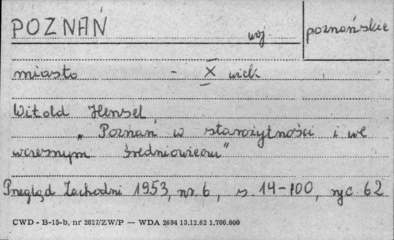 POZNAŃ woj. poznańskie
miasto - X wiek
Witold Hensel,
„Poznań w starożytności i we
wczesnym średniowieczu"
Przegląd Zachodni 1953, nr. 6, s. 14-100, ryc. 62
CWD - B-15-b, nr 2827/ZW/P — WDA 2694 13.12.62 1.700.000